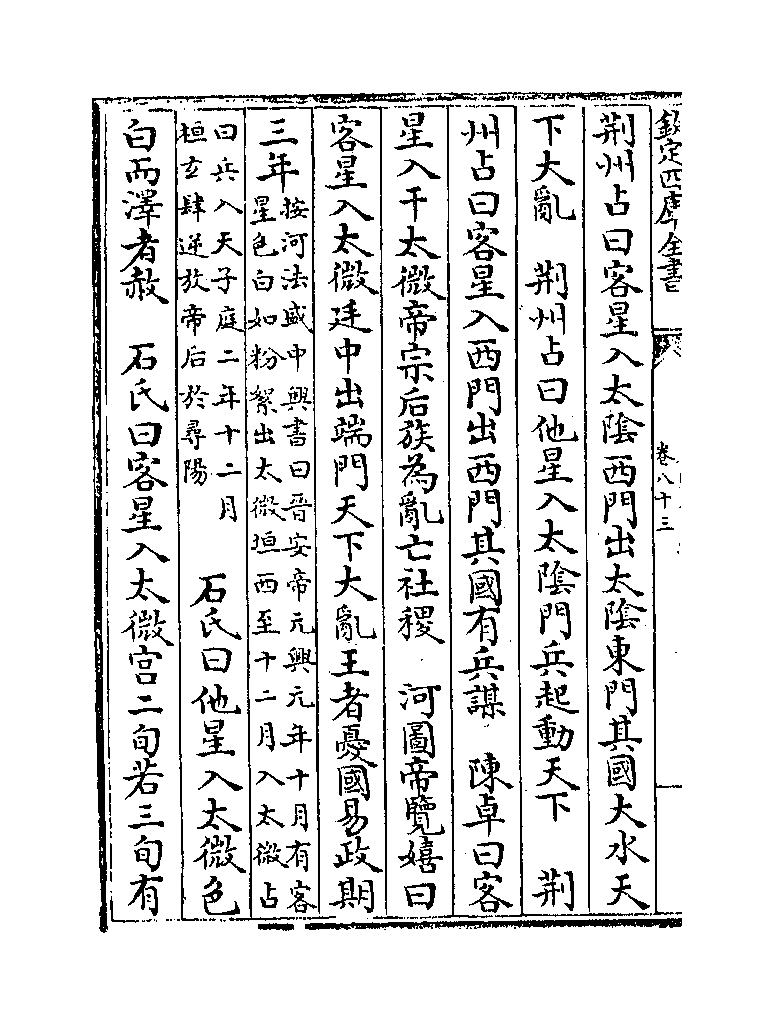 欽定四庫全書
卷八十三
荆州占曰客星入太陰西門出太陰東門其國大水天
下大亂 荆州占曰他星入太陰門兵起動天下 荆
州占曰客星入西門出西門其國有兵謀 陳卓曰客
星入干太微帝宗后族為亂亡社稷 河圖帝覽嬉曰
客星入太微廷中出端門天下大亂王者憂國易政期
三年按河法盛中興書曰晉安帝元興元年十月有客
星色白如粉絮出太微垣西至十二月入太微占
曰兵入天子庭二年十二月
桓玄肆逆放帝后於尋陽 石氏曰他星入太微色
白而澤者赦 石氏曰客星入太微宫二旬若三旬有